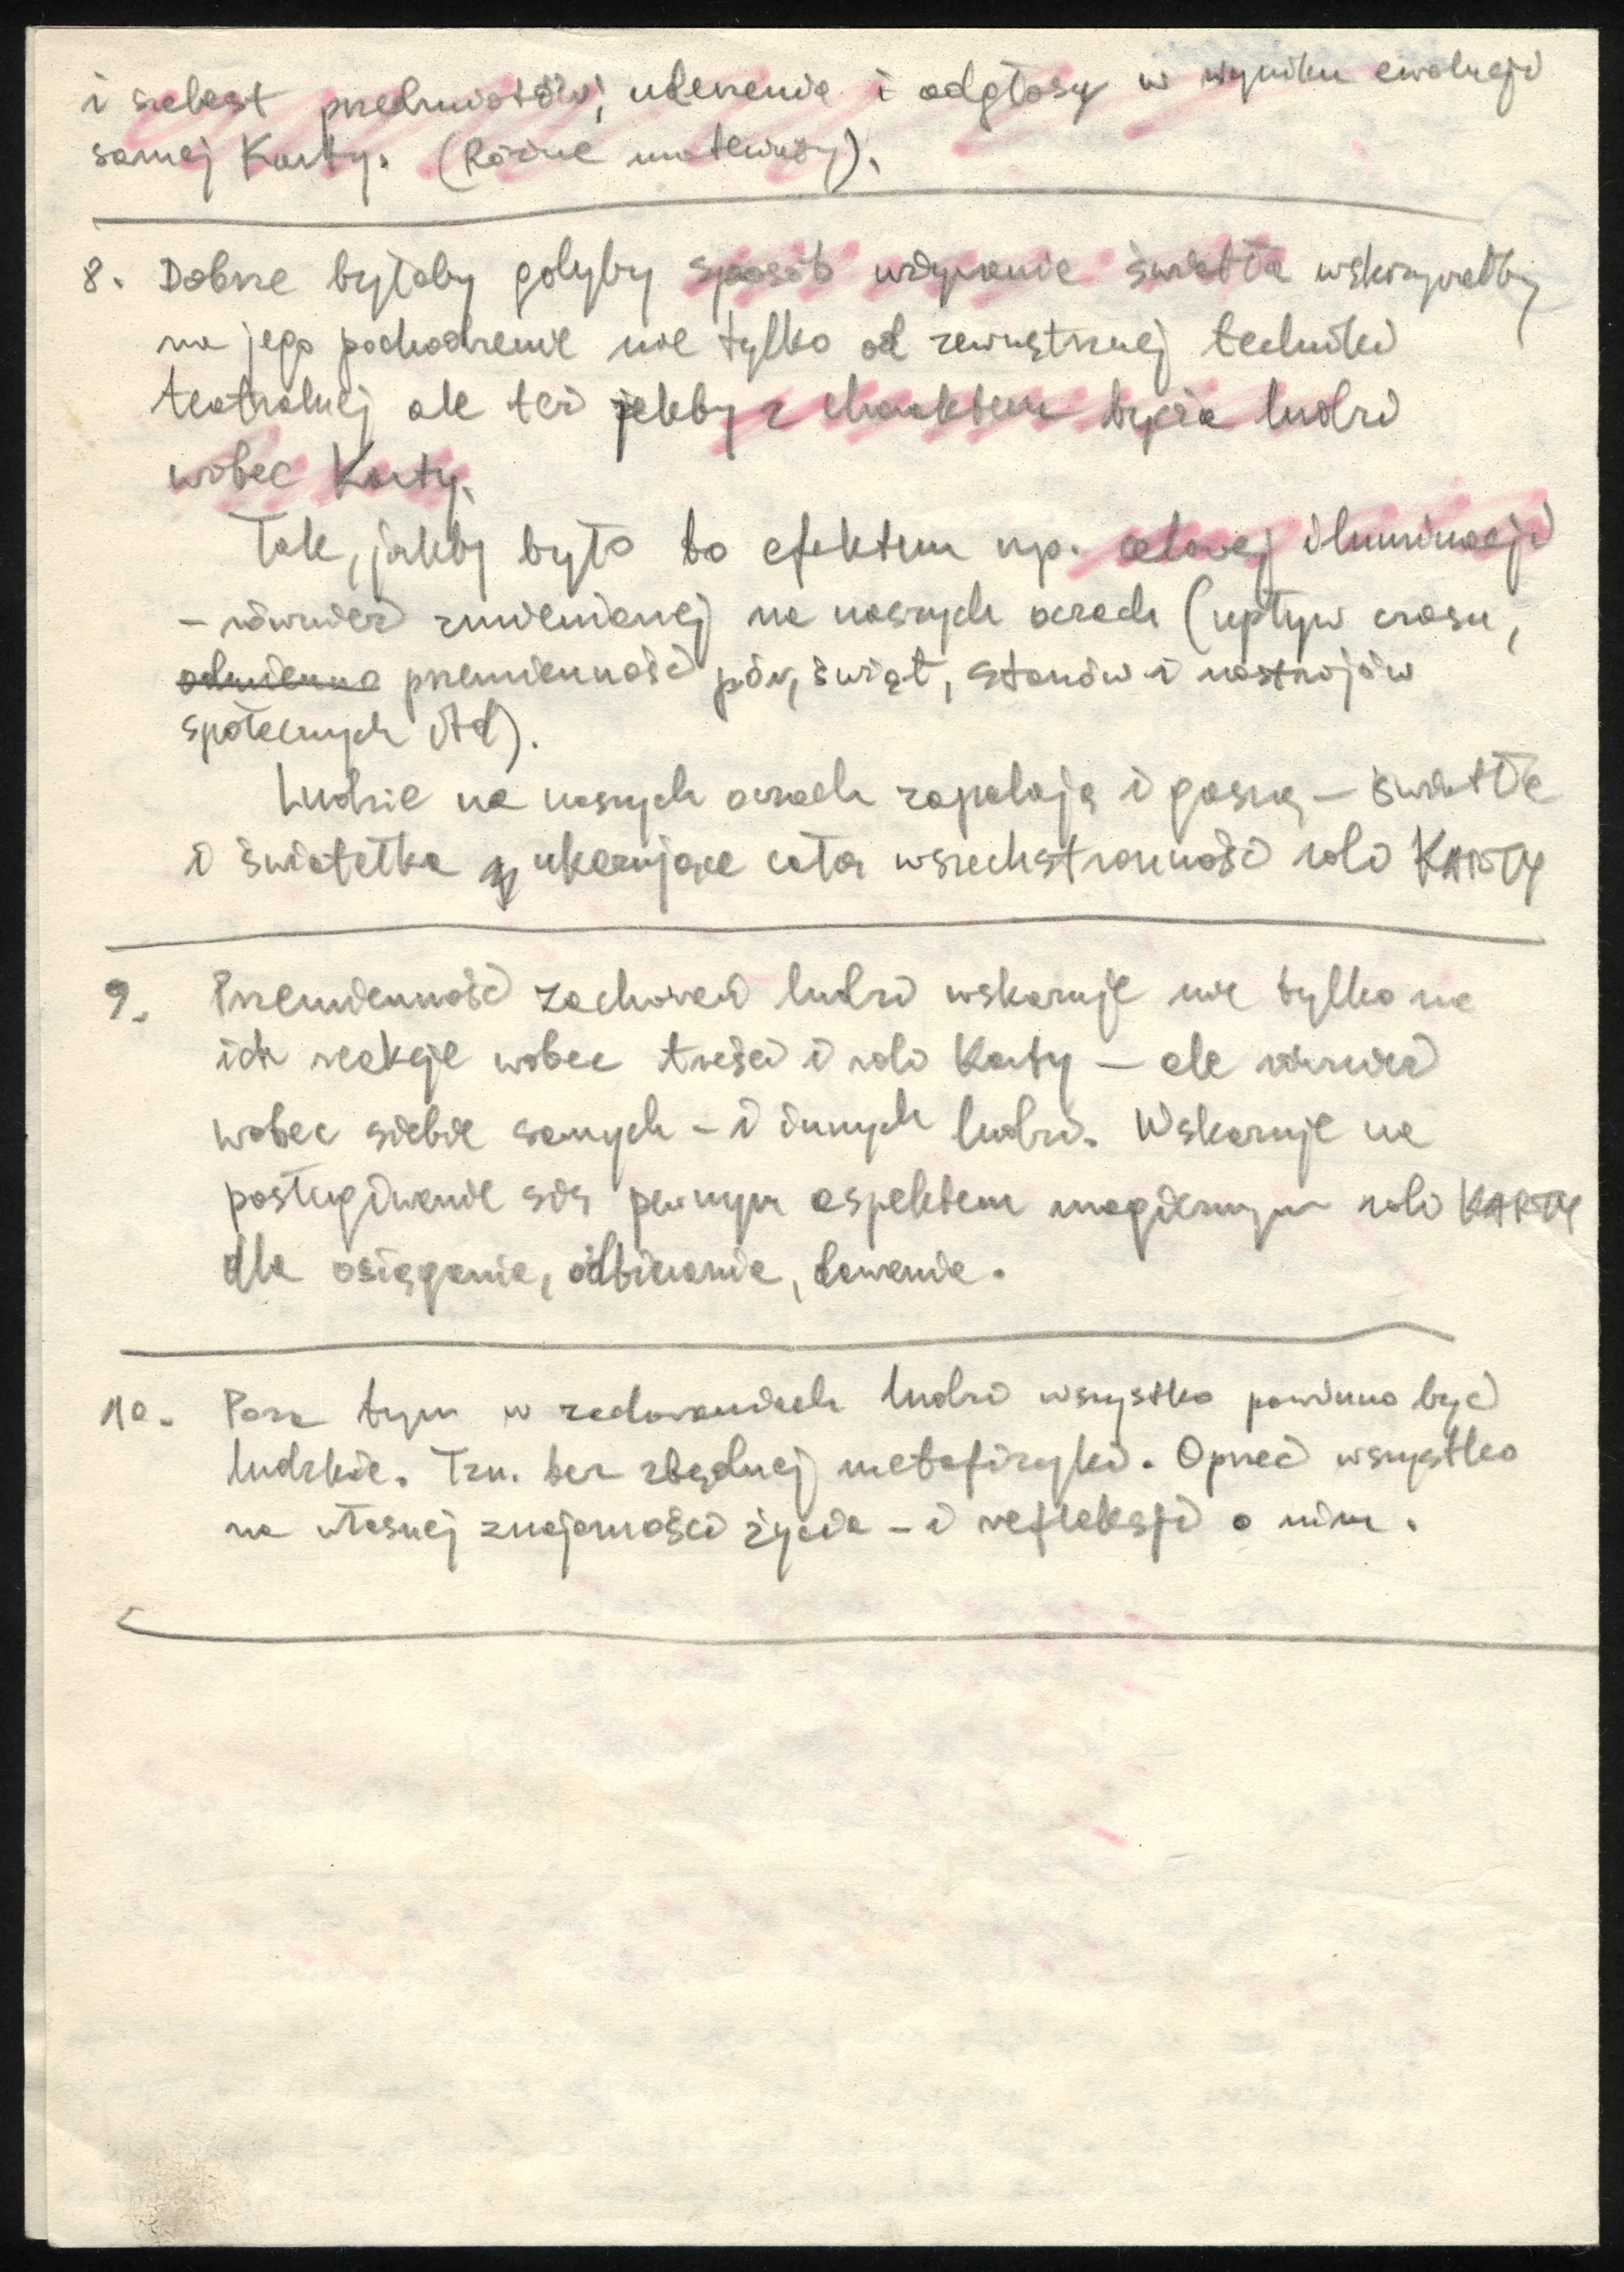 i szelest przedmiotów, uderzenia i odgłosy w wyniku ewolucji
samej Karty. (Różne materiały).
8. Dobrze byłoby gdyby sposób używania światła wskazywałby
na jego pochodzenie nie tylko od zewnętrznej techniki
teatralnej ale też jakby z charakteru bycia ludzi
wobec Karty.
Tak, jakby było to efektem np. celowej iluminacji
– również zmienianej na naszych oczach (upływ czasu,
odmienno przemienność pór, świąt, stanów i nastrojów
społecznych itd).
Ludzie na naszych oczach zapalają i gaszą – światła
i światełka ukazujące całą wszechstronność roli KARTY
9. Przemienność zachowań ludzi wskazuje nie tylko na
ich reakcje wobec treści i roli Karty – ale również
wobec siebie samych – i innych ludzi. Wskazuje na
posługiwanie się pewnym aspektem magicznym roli KARTY
dla osiągania, odbierania, dawania.
10. Poza tym w zachowaniach ludzi wszystko powinno być
ludzkie. Tzn. bez zbędnej metafizyki. Oprzeć wszystko
na własnej znajomości życia – i refleksji o nim.